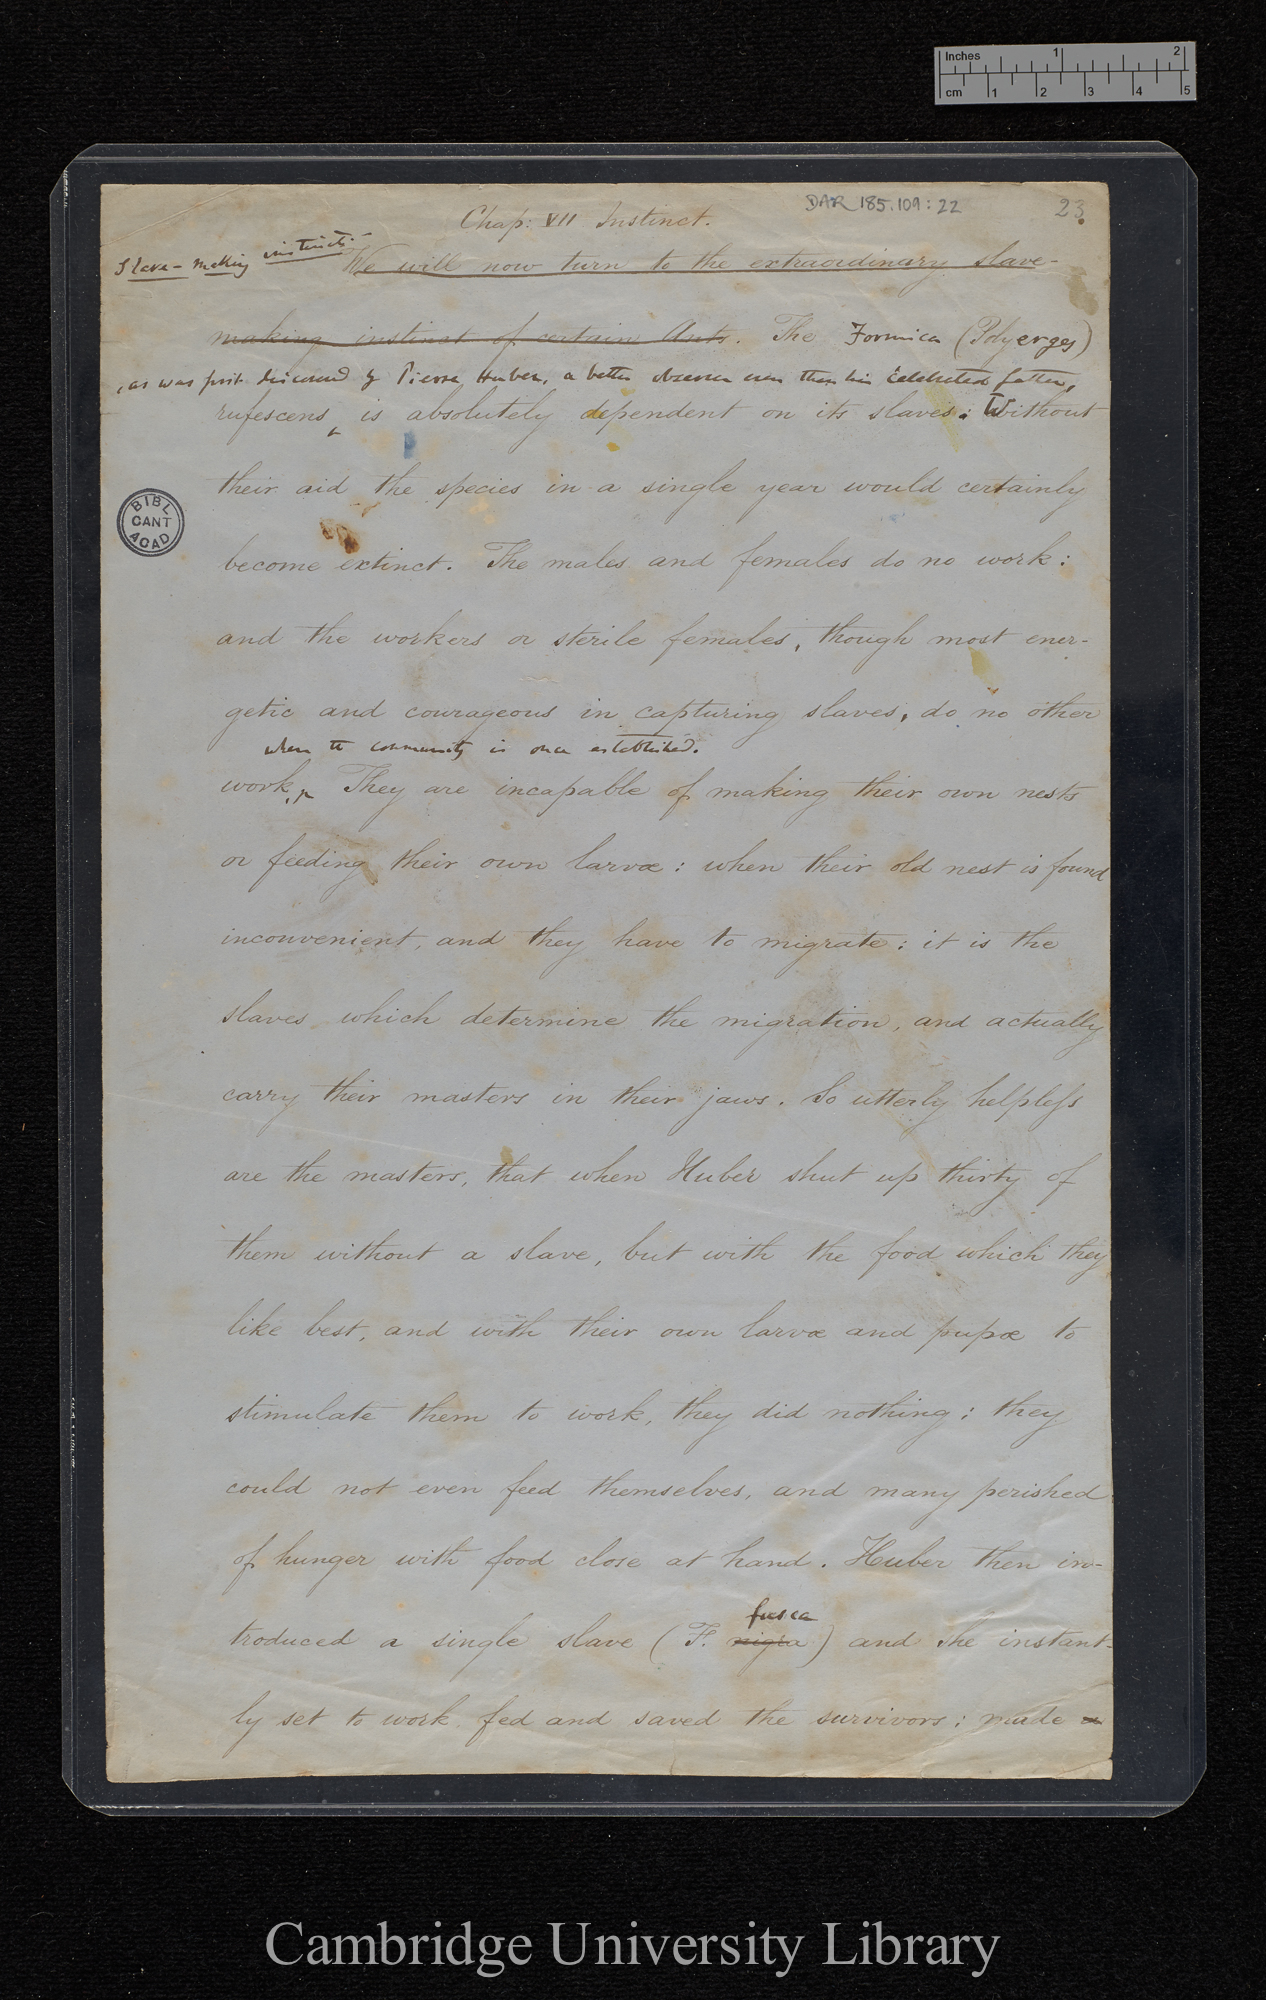 Inches 1 2
cm 1 2 3 4 5
DAR 185.109:22
23
Chap: VII Instinct.
Slave-making instinct.-
We will now turn to the extraordinary slave-
making instinct of certain Ants. The Formica (Polyerges)
, as was first discovered by Pierre Huber, a better observer even than his celebrated father,
rufescens, is absolutely dependent on its slaves: Without
their aid the species in a single year would certainly
BIBL
CANT
ACAD
become extinct. The males and females do no work:
and the workers or sterile females, though most ener-
getic and courageous in capturing slaves, do no other
when the community is once established.
work. They are incapable of making their own nests
or feeding their own larvæ: when their old nest is found
inconvenient, and they have to migrate: it is the
slaves which determine the migration, and actually
carry their masters in their jaws. So utterly helpless
are the masters, that when Huber shut up thirty of
them without a slave, but with the food which they
like best, and with their own larvæ and pupæ to
stimulate them to work, they did nothing; they
could not even feed themselves, and many perished
of hunger with food close at hand. Huber then in-
fusca
troduced a single slave (F. nigra) and she instant-
ly set to work, fed and saved the survivors; made a
Cambridge University Library